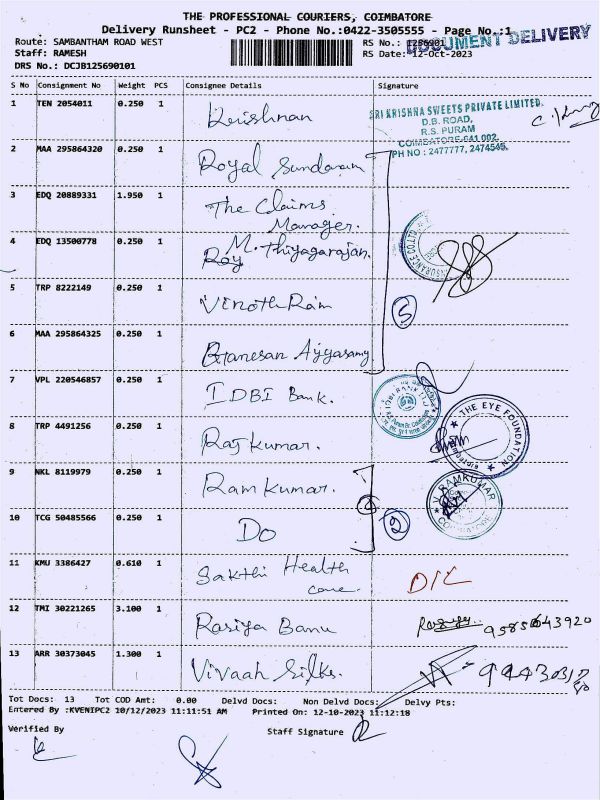 THE PROFESSIONAL COURIERS, COIMBATORE
Delivery Runsheet - PC2 - Phone No.:0422-3505555 - Page No.:1
Route: SAMBANTHAM ROAD WEST RS No.: 1256901
DOCUMENT DELIVERY
Staff: RAMESH RS Date: 12-Oct-2023
DRS No.: DCJB125690101
S No Consignment No Weight PCS Consignee Details Signature
1 TEN 2054011 0.250 1 Krishnan
SRI KRISHNA SWEETS PRIVATE LIMITED.
D.B. ROAD,
R.S. PURAM
COIMBATORE-641 002.
PH NO : 2477777, 2474545.
2 MAA 295864320 0.250 1 Royal Sundaram
3 EDQ 20889331 1.950 1 The Claims
Manager.
4 EDQ 13500778 0.250 1 M. Thiyagarajan.
Roy
5 TRP 8222149 0.250 1 Vinoth Ram
5
6 MAA 295864325 0.250 1 Ganesan Ayyasamy
7 VPL 220546857 0.250 1 IDBI Bank.
8 TRP 4491256 0.250 1 Rajkumar.
THE EYE FOUNDATION
9 NKL 8119979 0.250 1 Ram Kumar.
V. RAMKUMAR
COIMBATORE
10 TCG 50485566 0.250 1 Do
2
11 KMU 3386427 0.610 1 Sakthi Health
care
D/L
12 TMI 30221265 3.100 1 Rasiya Banu
13 ARR 30373045 1.300 1 Vivaah Silks.
Tot Docs: 13 Tot COD Amt: 0.00 Delvd Docs: Non Delvd Docs: Delvy Pts:
Entered By :KVENIPC2 10/12/2023 11:11:51 AM Printed On: 12-10-2023 11:12:18
Verified By Staff Signature